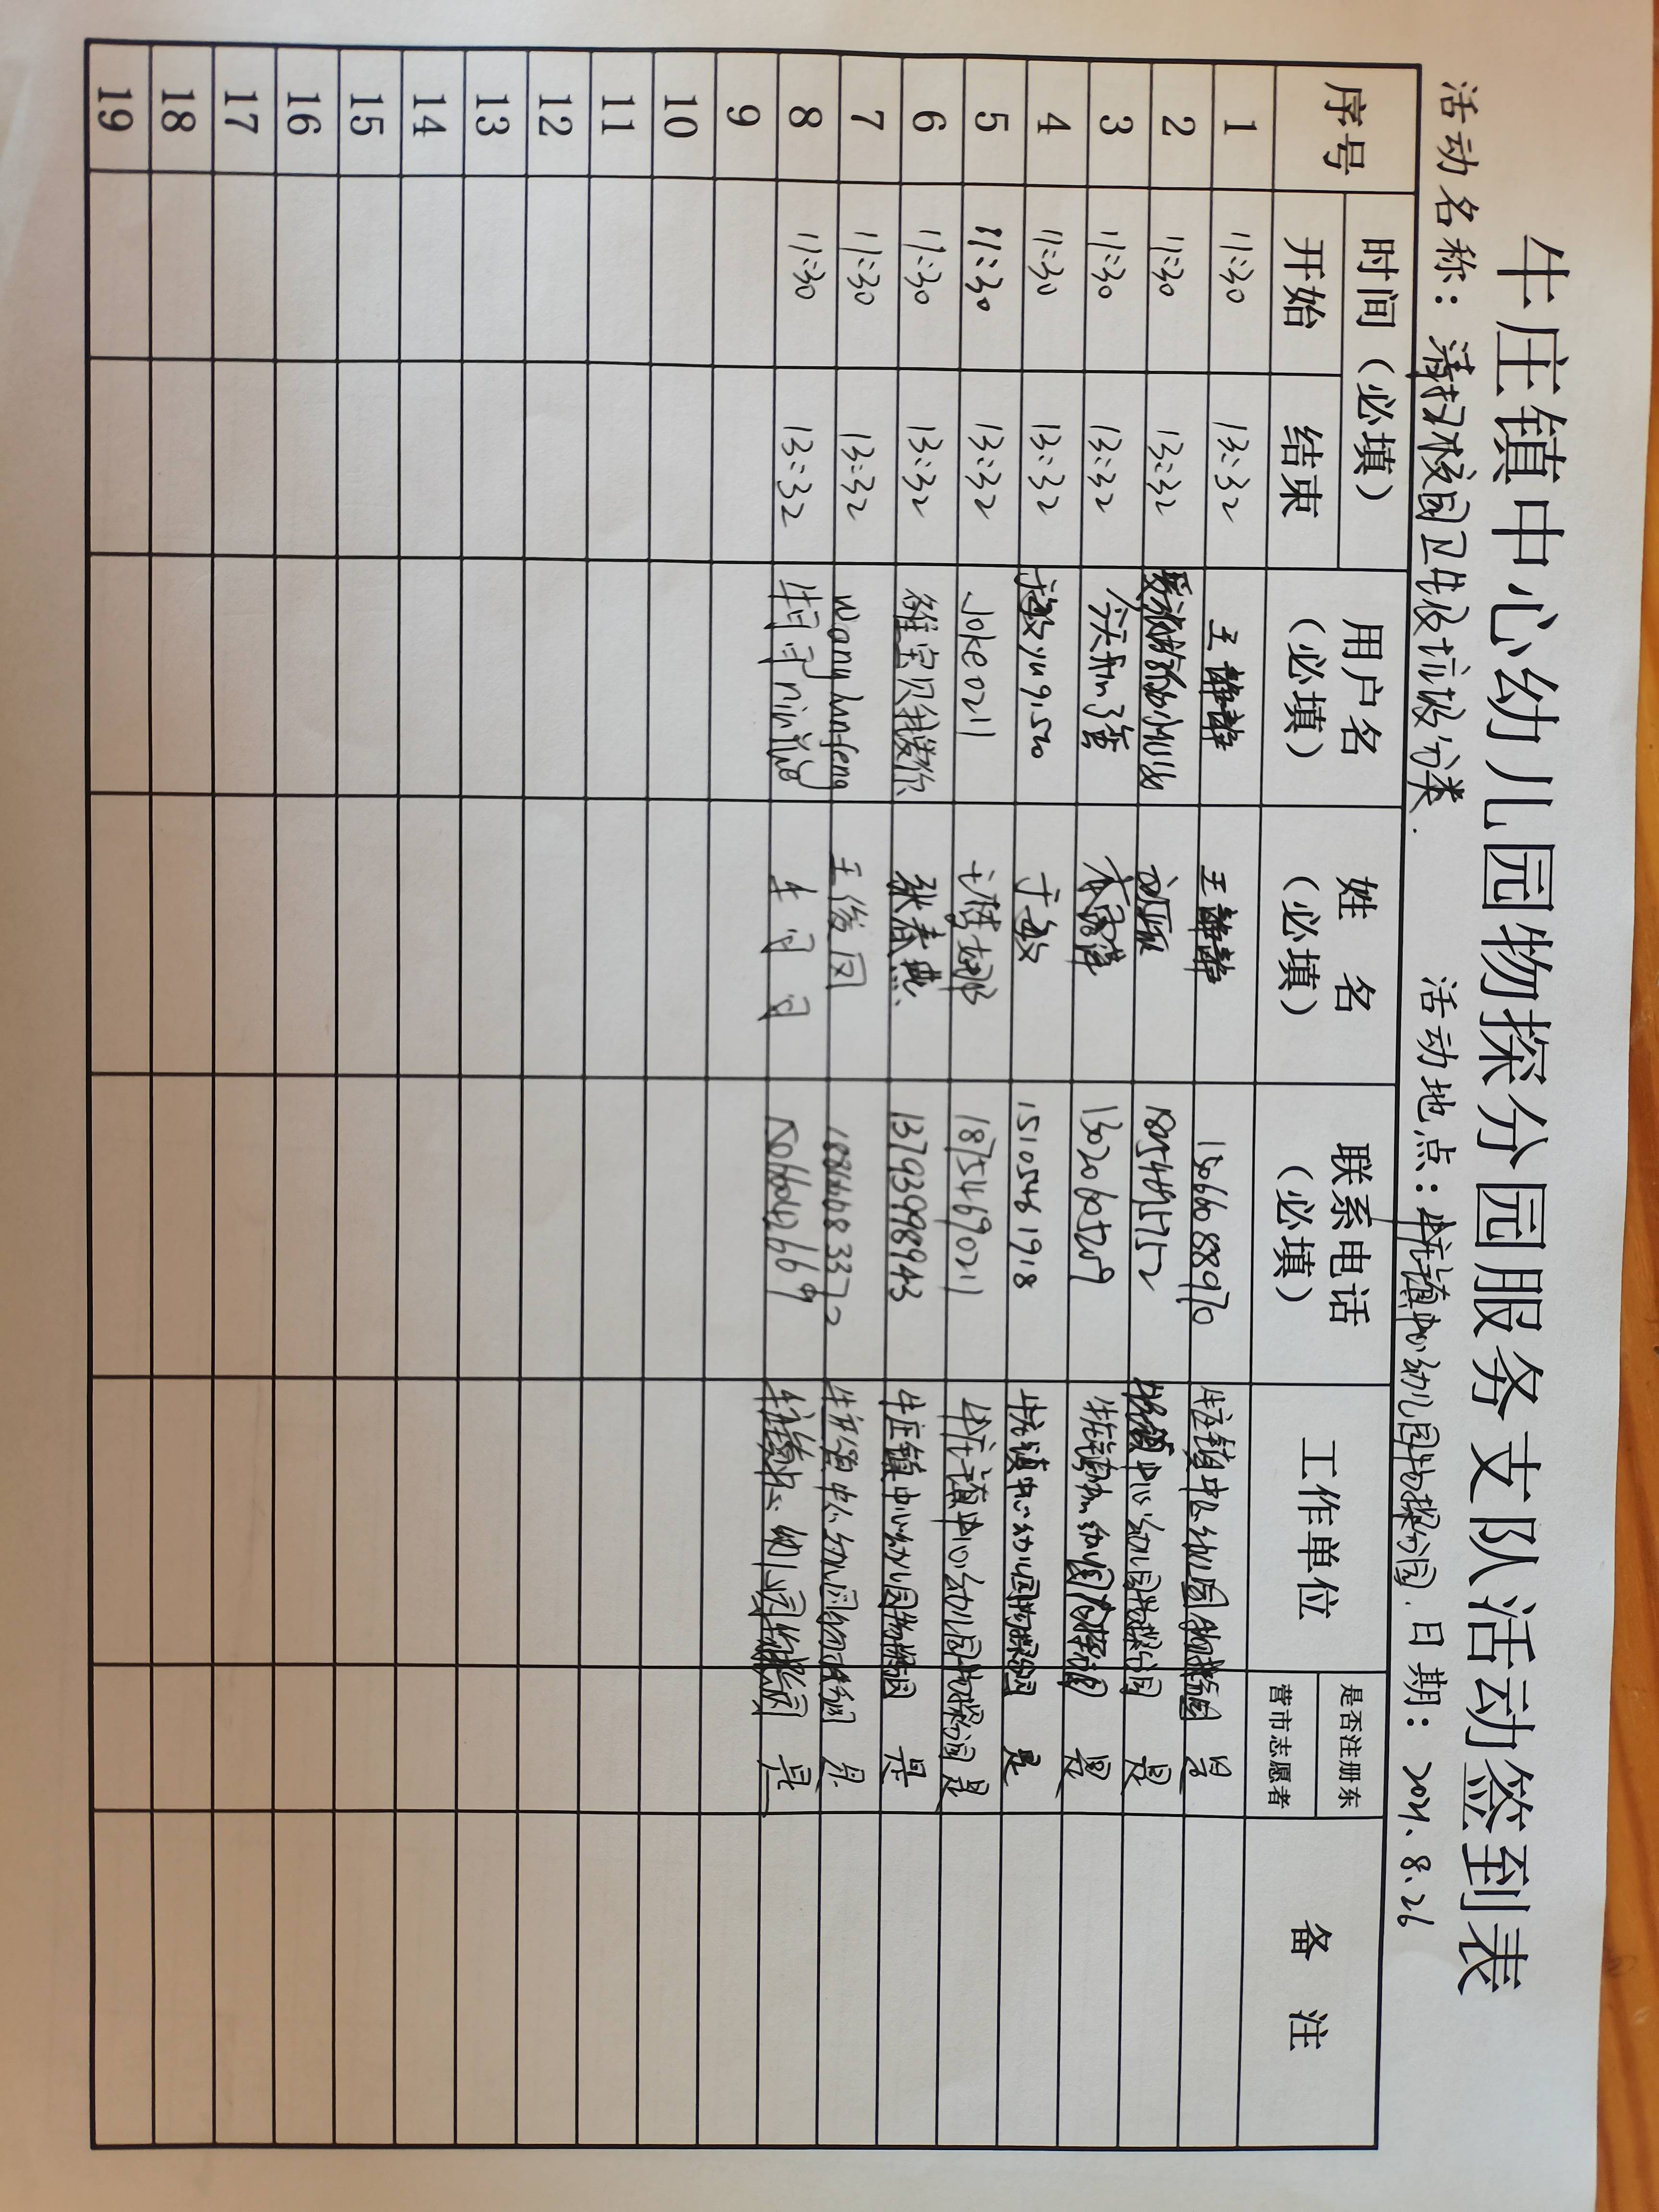 牛庄镇中心幼儿园物探分园服务支队活动签到表
活动名称：清扫校园卫生及垃圾分类. 活动地点：牛庄镇中心幼儿园物探分园. 日期：2021.8.26
序号 时间（必填） 用户名（必填） 姓名（必填） 联系电话（必填） 工作单位 是否注册东营市志愿者 备注
开始 结束
1 11:30 13:32 王静静 王静静 15066088970 牛庄镇中心幼儿园物探分园 是
2 11:30 13:32 18254895752 牛庄镇中心幼儿园物探分园 是
3 11:30 13:32 13020605209 牛庄镇中心幼儿园物探分园 是
4 11:30 13:32 于敏 15105461918 牛庄镇中心幼儿园物探分园 是
5 11:30 13:32 Joke0211 18754690211 牛庄镇中心幼儿园物探分园 是
6 11:30 13:32 张春燕 13793998943 牛庄镇中心幼儿园物探分园 是
7 11:30 13:32 王俊凤 牛庄镇中心幼儿园物探分园 是
8 11:30 13:32 牛闪闪 15066042669 牛庄镇中心幼儿园物探分园 是
9
10
11
12
13
14
15
16
17
18
19